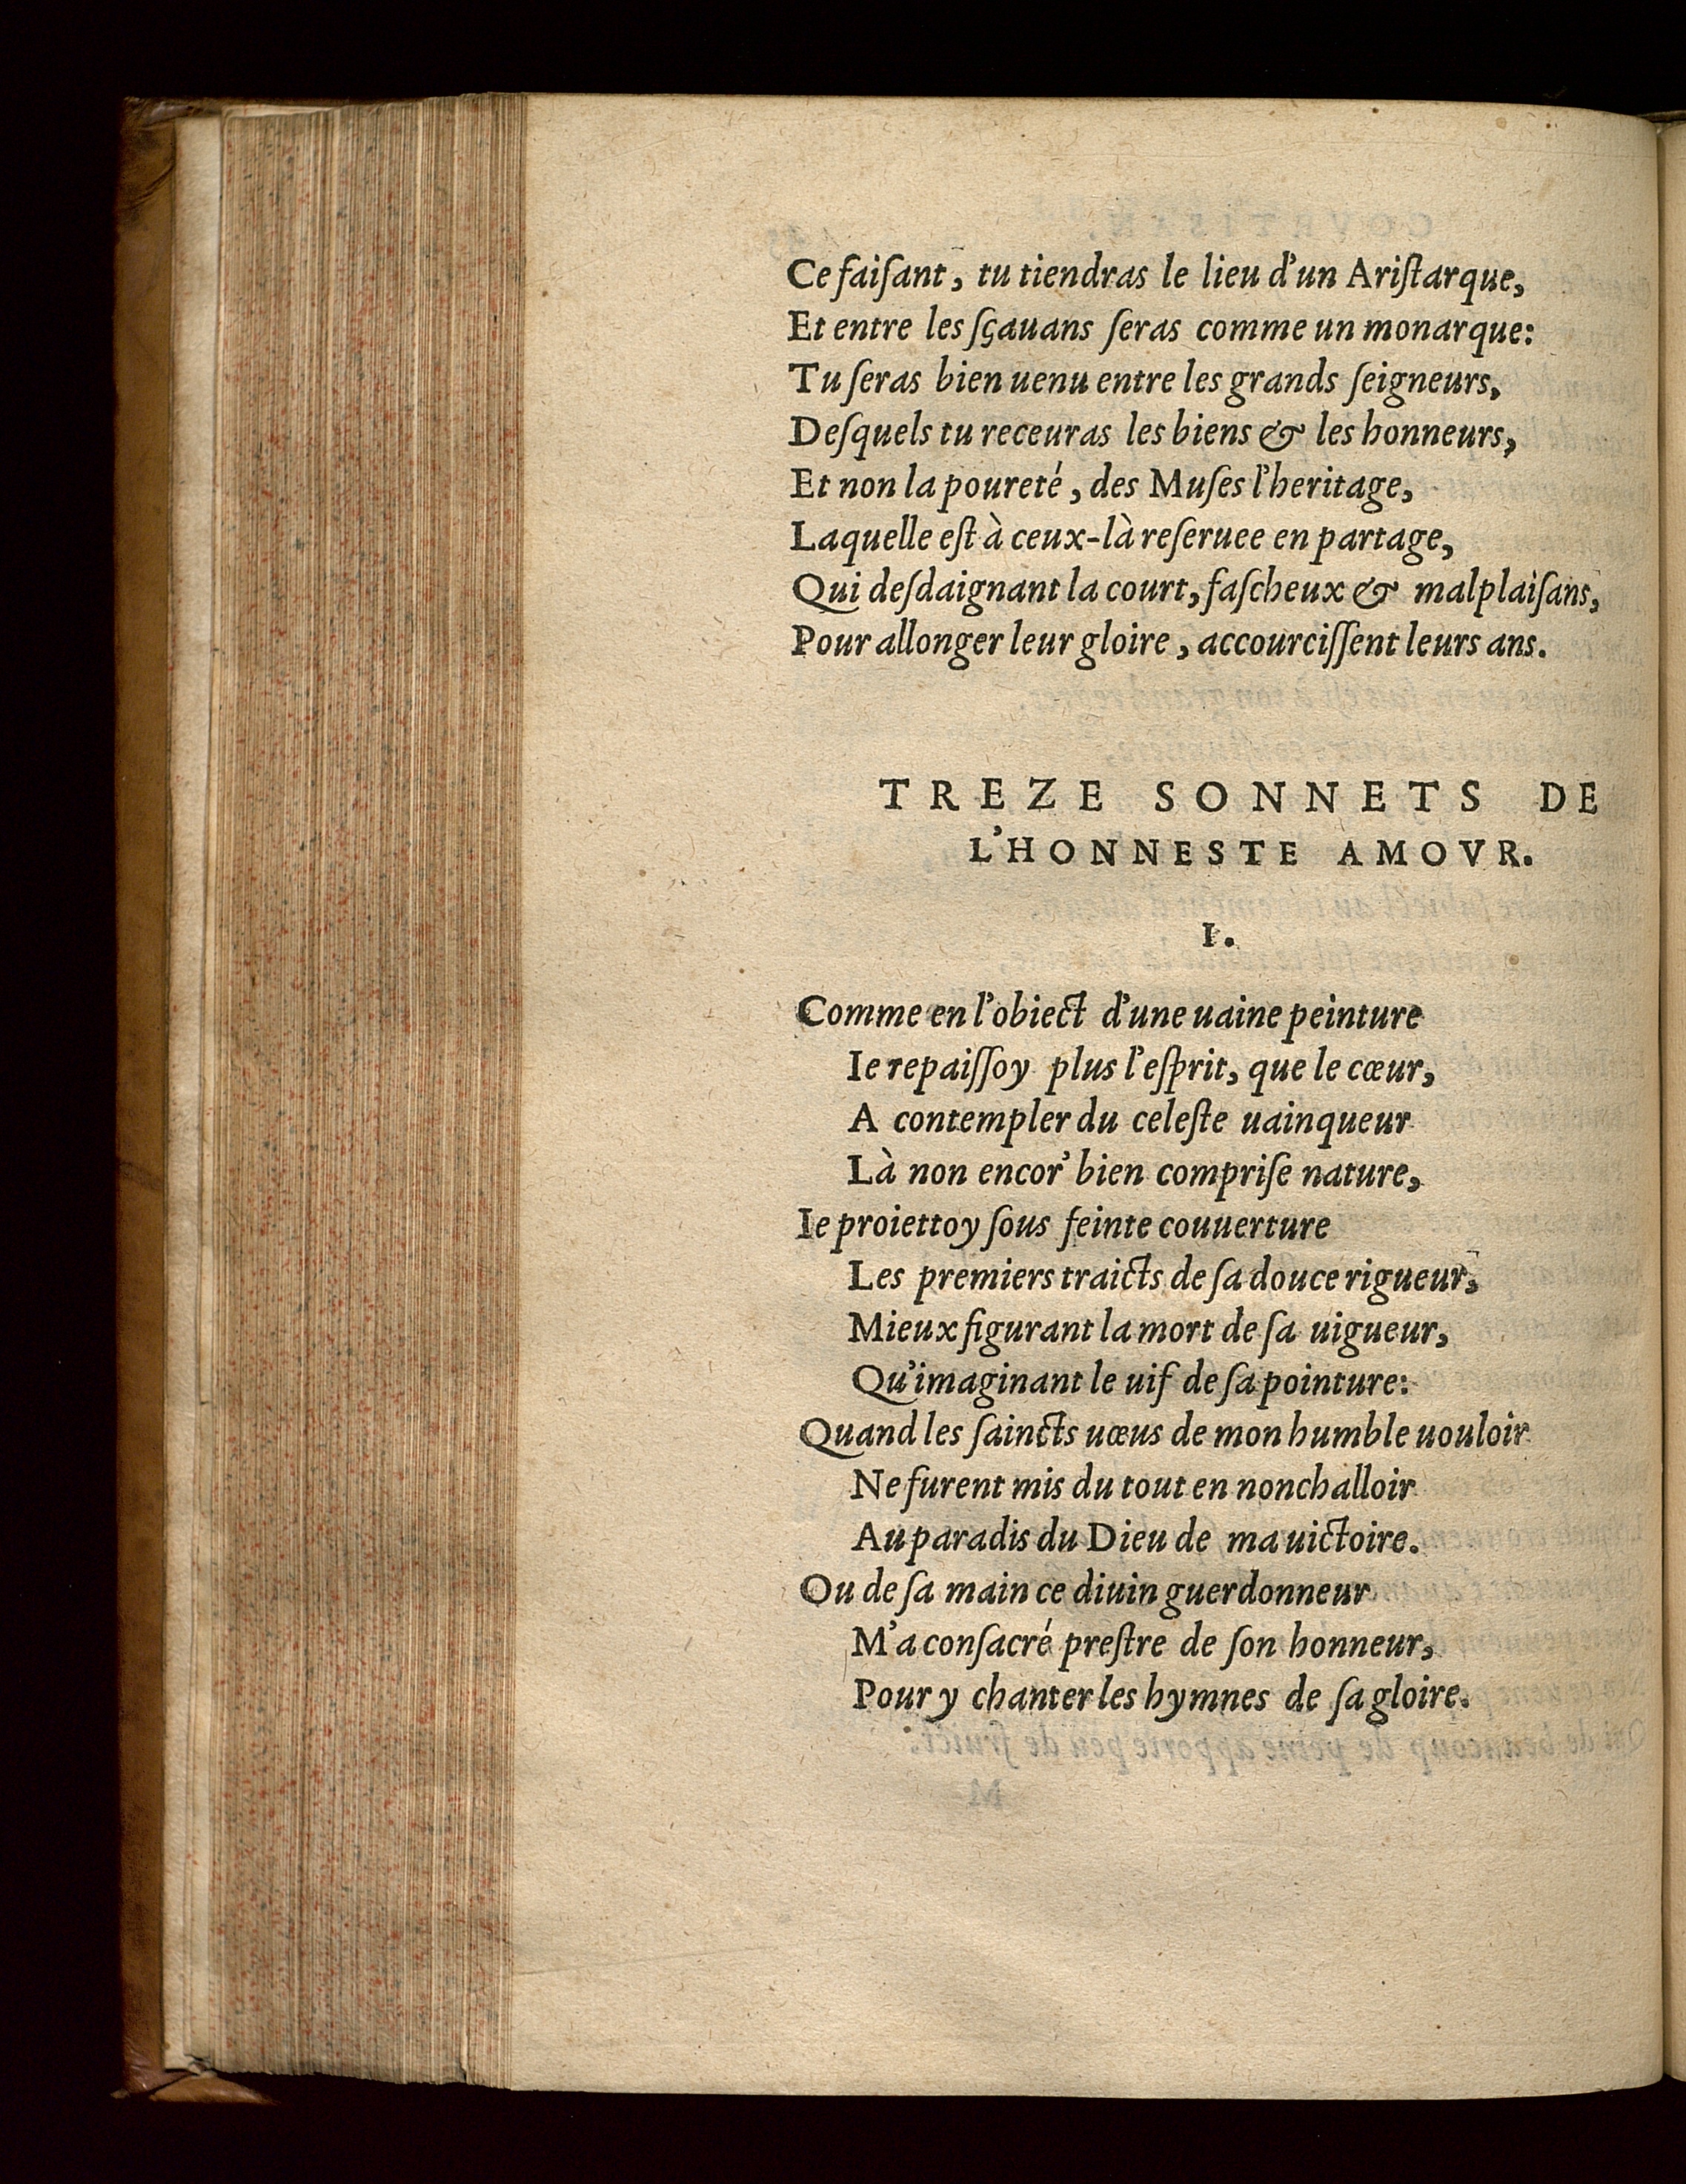 Ce faiſant, tu tiendras le lieu d'un Ariſtarque,
Et entre les ſçauans ſeras comme un monarque:
Tu ſeras bien uenu entre les grands ſeigneurs,
Deſquels tu receuras les biens & les honneurs,
Et non la poureté, des Muſes l'heritage,
Laquelle eſt à ceux-là reſeruee en partage,
Qui deſdaignant la court, faſcheux & malplaiſans,
Pour allonger leur gloire, accourciſſent leurs ans.
TREZE SONNETS DE
L'HONNESTE AMOVR.
I.
Comme en l'obiect d'une uaine peinture
Ie repaiſſoy plus l'eſprit, que le cœur,
A contempler du celeſte uainqueur
Là non encor' bien compriſe nature,
Ie proiettoy ſous feinte couuerture
Les premiers traicts de ſa douce rigueur,
Mieux figurant la mort de ſa uigueur,
Qu'imaginant le uif de ſa pointure:
Quand les ſaincts uœus de mon humble uouloir
Ne furent mis du tout en nonchalloir
Au paradis du Dieu de ma uictoire.
Ou de ſa main ce diuin guerdonneur
M'a conſacré preſtre de ſon honneur,
Pour y chanter les hymnes de ſa gloire.